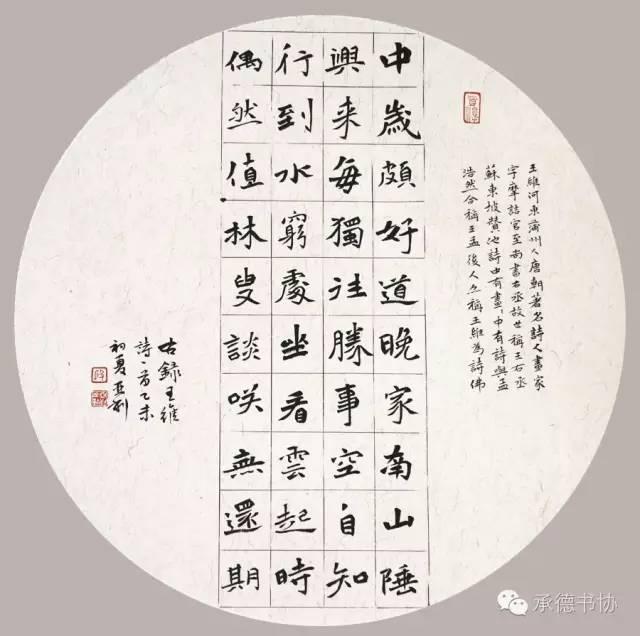 王維河東蒲州人唐朝著名詩人畫家
字摩詰官至尚書右丞故世稱王右丞
蘇東坡贊他詩中有畫、中有詩與孟
浩然合稱王孟後人亦稱王維為詩佛
中歲頗好道晚家南山陲
興来每獨往勝事空自知
行到水窮處坐看雲起時
偶然值林叟談咲無還期
右錄王維
詩一首乙未
初夏
承德书协